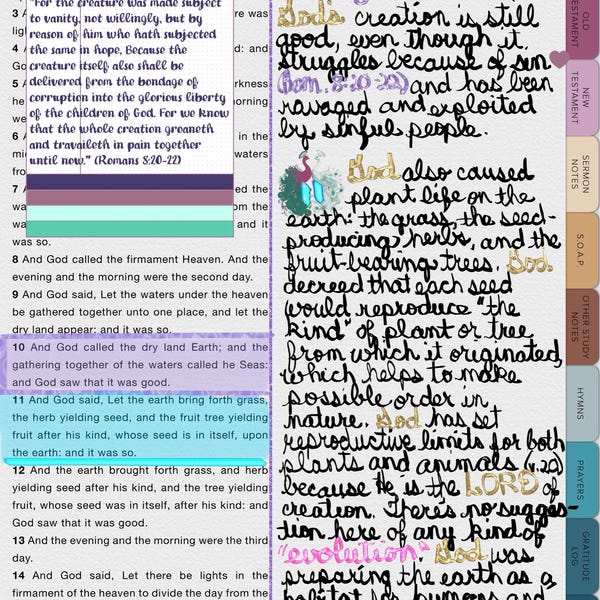 "For the creature was made subject
to vanity, not willingly, but by
reason of him who hath subjected
the same in hope, Because the
creature itself also shall be
delivered from the bondage of
corruption into the glorious liberty
of the children of God. For we know
that the whole creation groaneth
and travaileth in pain together
until now." (Romans 8:20-22)
was so.
8 And God called the firmament Heaven. And the
evening and the morning were the second day.
9 And God said, Let the waters under the heaven
be gathered together unto one place, and let the
dry land appear: and it was so.
10 And God called the dry land Earth; and the
gathering together of the waters called he Seas:
and God saw that it was good.
11 And God said, Let the earth bring forth grass,
the herb yielding seed, and the fruit tree yielding
fruit after his kind, whose seed is in itself, upon
the earth: and it was so.
12 And the earth brought forth grass, and herb
yielding seed after his kind, and the tree yielding
fruit, whose seed was in itself, after his kind: and
God saw that it was good.
13 And the evening and the morning were the third
day.
14 And God said, Let there be lights in the
firmament of the heaven to divide the day from the
God's creation is still
good, even though it
struggles because of sin
(Rom. 8:20-22) and has been
ravaged and exploited
by sinful people.
God also caused
plant life on the
earth: the grass, the seed-
producing herbs, and the
fruit-bearing trees. God
decreed that each seed
would reproduce "the
kind" of plant or tree
from which it originated,
which helps to make
possible order in
nature. God has set
reproductive limits for both
plants and animals (v.20)
because He is the LORD of
creation. There's no sugges-
tion here of any kind of
"evolution." God was
preparing the earth as a
habitat for humans and
OLD
TESTAMENT
NEW
TESTAMENT
SERMON
NOTES
S.O.A.P.
OTHER STUDY
NOTES
HYMNS
PRAYERS
GRATITUDE
LOG